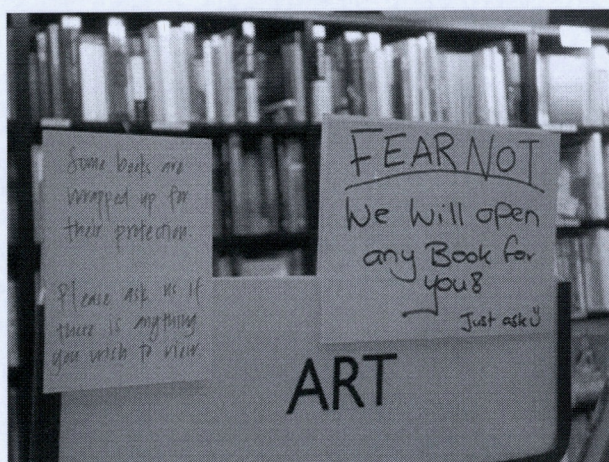 Some books are
wrapped up for
their protection.
Please ask us if
there is anything
you wish to view.
FEAR NOT
We Will open
any Book for
you!
Just ask
ART